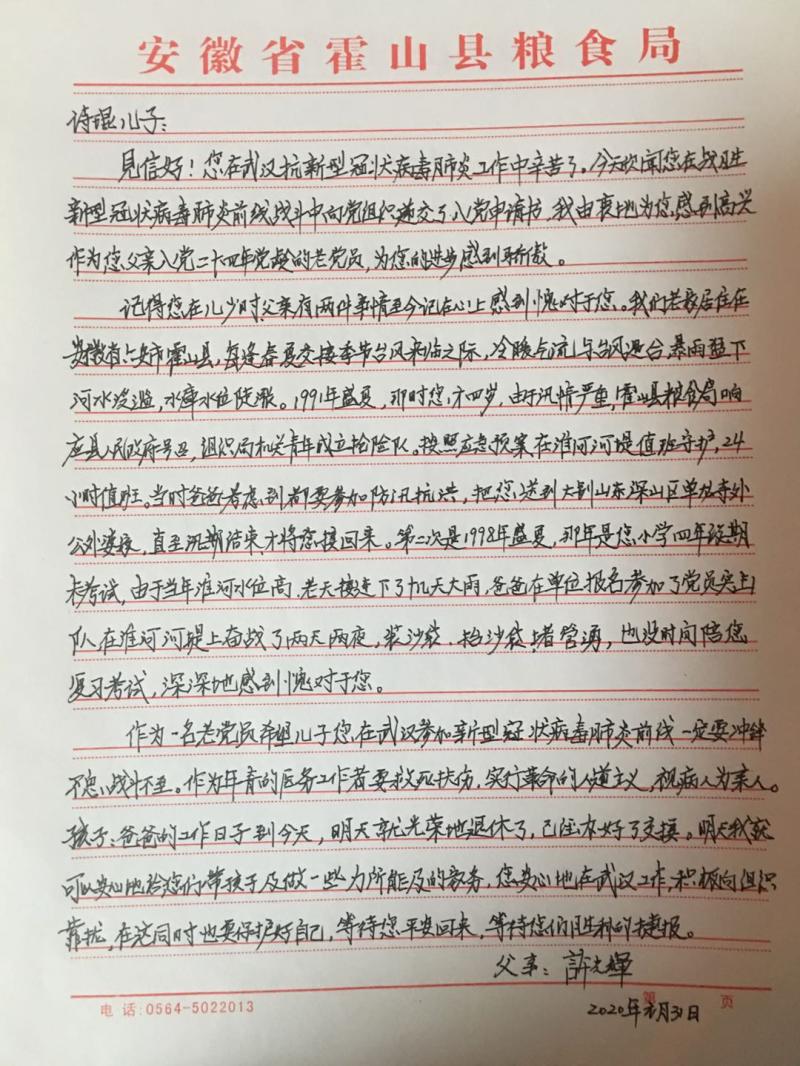 安徽省霍山县粮食局
诗琨儿子:
见信好!您在武汉抗新型冠状病毒肺炎工作中辛苦了。今天欣闻您在战胜
新型冠状病毒肺炎前线战斗中向党组织递交了入党申请书,我由衷地为您感到高兴
作为您父亲入党二十四年党龄的老党员,为您的进步感到骄傲。
记得您在儿少时父亲有两件事情至今记在心上感到愧对于您。我们老家居住在
安徽省六安市霍山县,每逢春夏交接季节台风来临之际,冷暖气流与台风迎合,暴雨强下
河水泛滥,水库水位陡涨。1991年盛夏,那时您才四岁,由于汛情严重,霍山县粮食局响
应县人民政府号召,组织局机关青年成立抢险队。按照应急预案在淮河河堤值班守护,24
小时值班。当时爸爸考虑到都要参加防汛抗洪,把您送到大别山东深山区单龙寺外
公外婆接,直至汛期结束才将您接回来。第二次是1998年盛夏,那年是您小学四年级期
末考试,由于当年淮河水位高,老天接连下了十几天大雨,爸爸在单位报名参加了党员突击
队在淮河河堤上奋战了两天两夜,装沙袋、抬沙袋、堵管涌,也没时间陪您
复习考试,深深地感到愧对于您。
作为一名老党员希望儿子您在武汉参加新型冠状病毒肺炎前线一定要冲锋
不怠,战斗不至。作为年青的医务工作者要救死扶伤,实行革命的人道主义,视病人为亲人。
孩子:爸爸的工作日子到今天,明天就光荣地退休了,已经办好了交接。明天我就
可以安心地给您们带孩子及做一些力所能及的家务,您安心地在武汉工作,积极向组织
靠拢,在这同时也要保护好自己,等待您平安回来,等待您们胜利的捷报。
父亲:許光輝
电话:0564-5022013 第 页
2020年1月31日